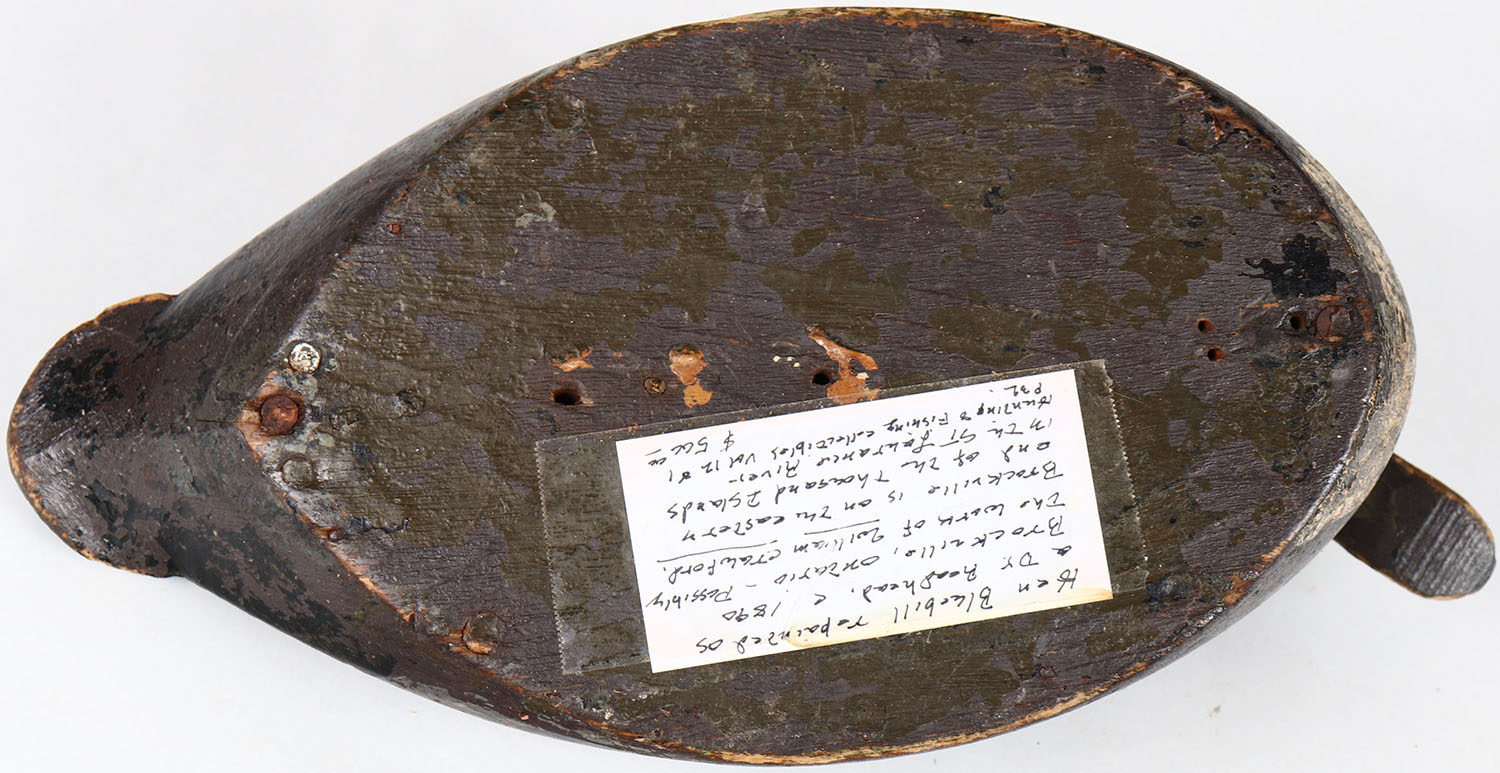 Hen Bluebill repainted as
a Dr. Redhead, c 1890
Brockville, Ontario - Possibly
The work of William Crawford.
Brockville is on the eastern
end of the Thousand Islands
in the St Lawrance River -
Hunting & Fishing collectibles Vol 12 #1
P32. $500